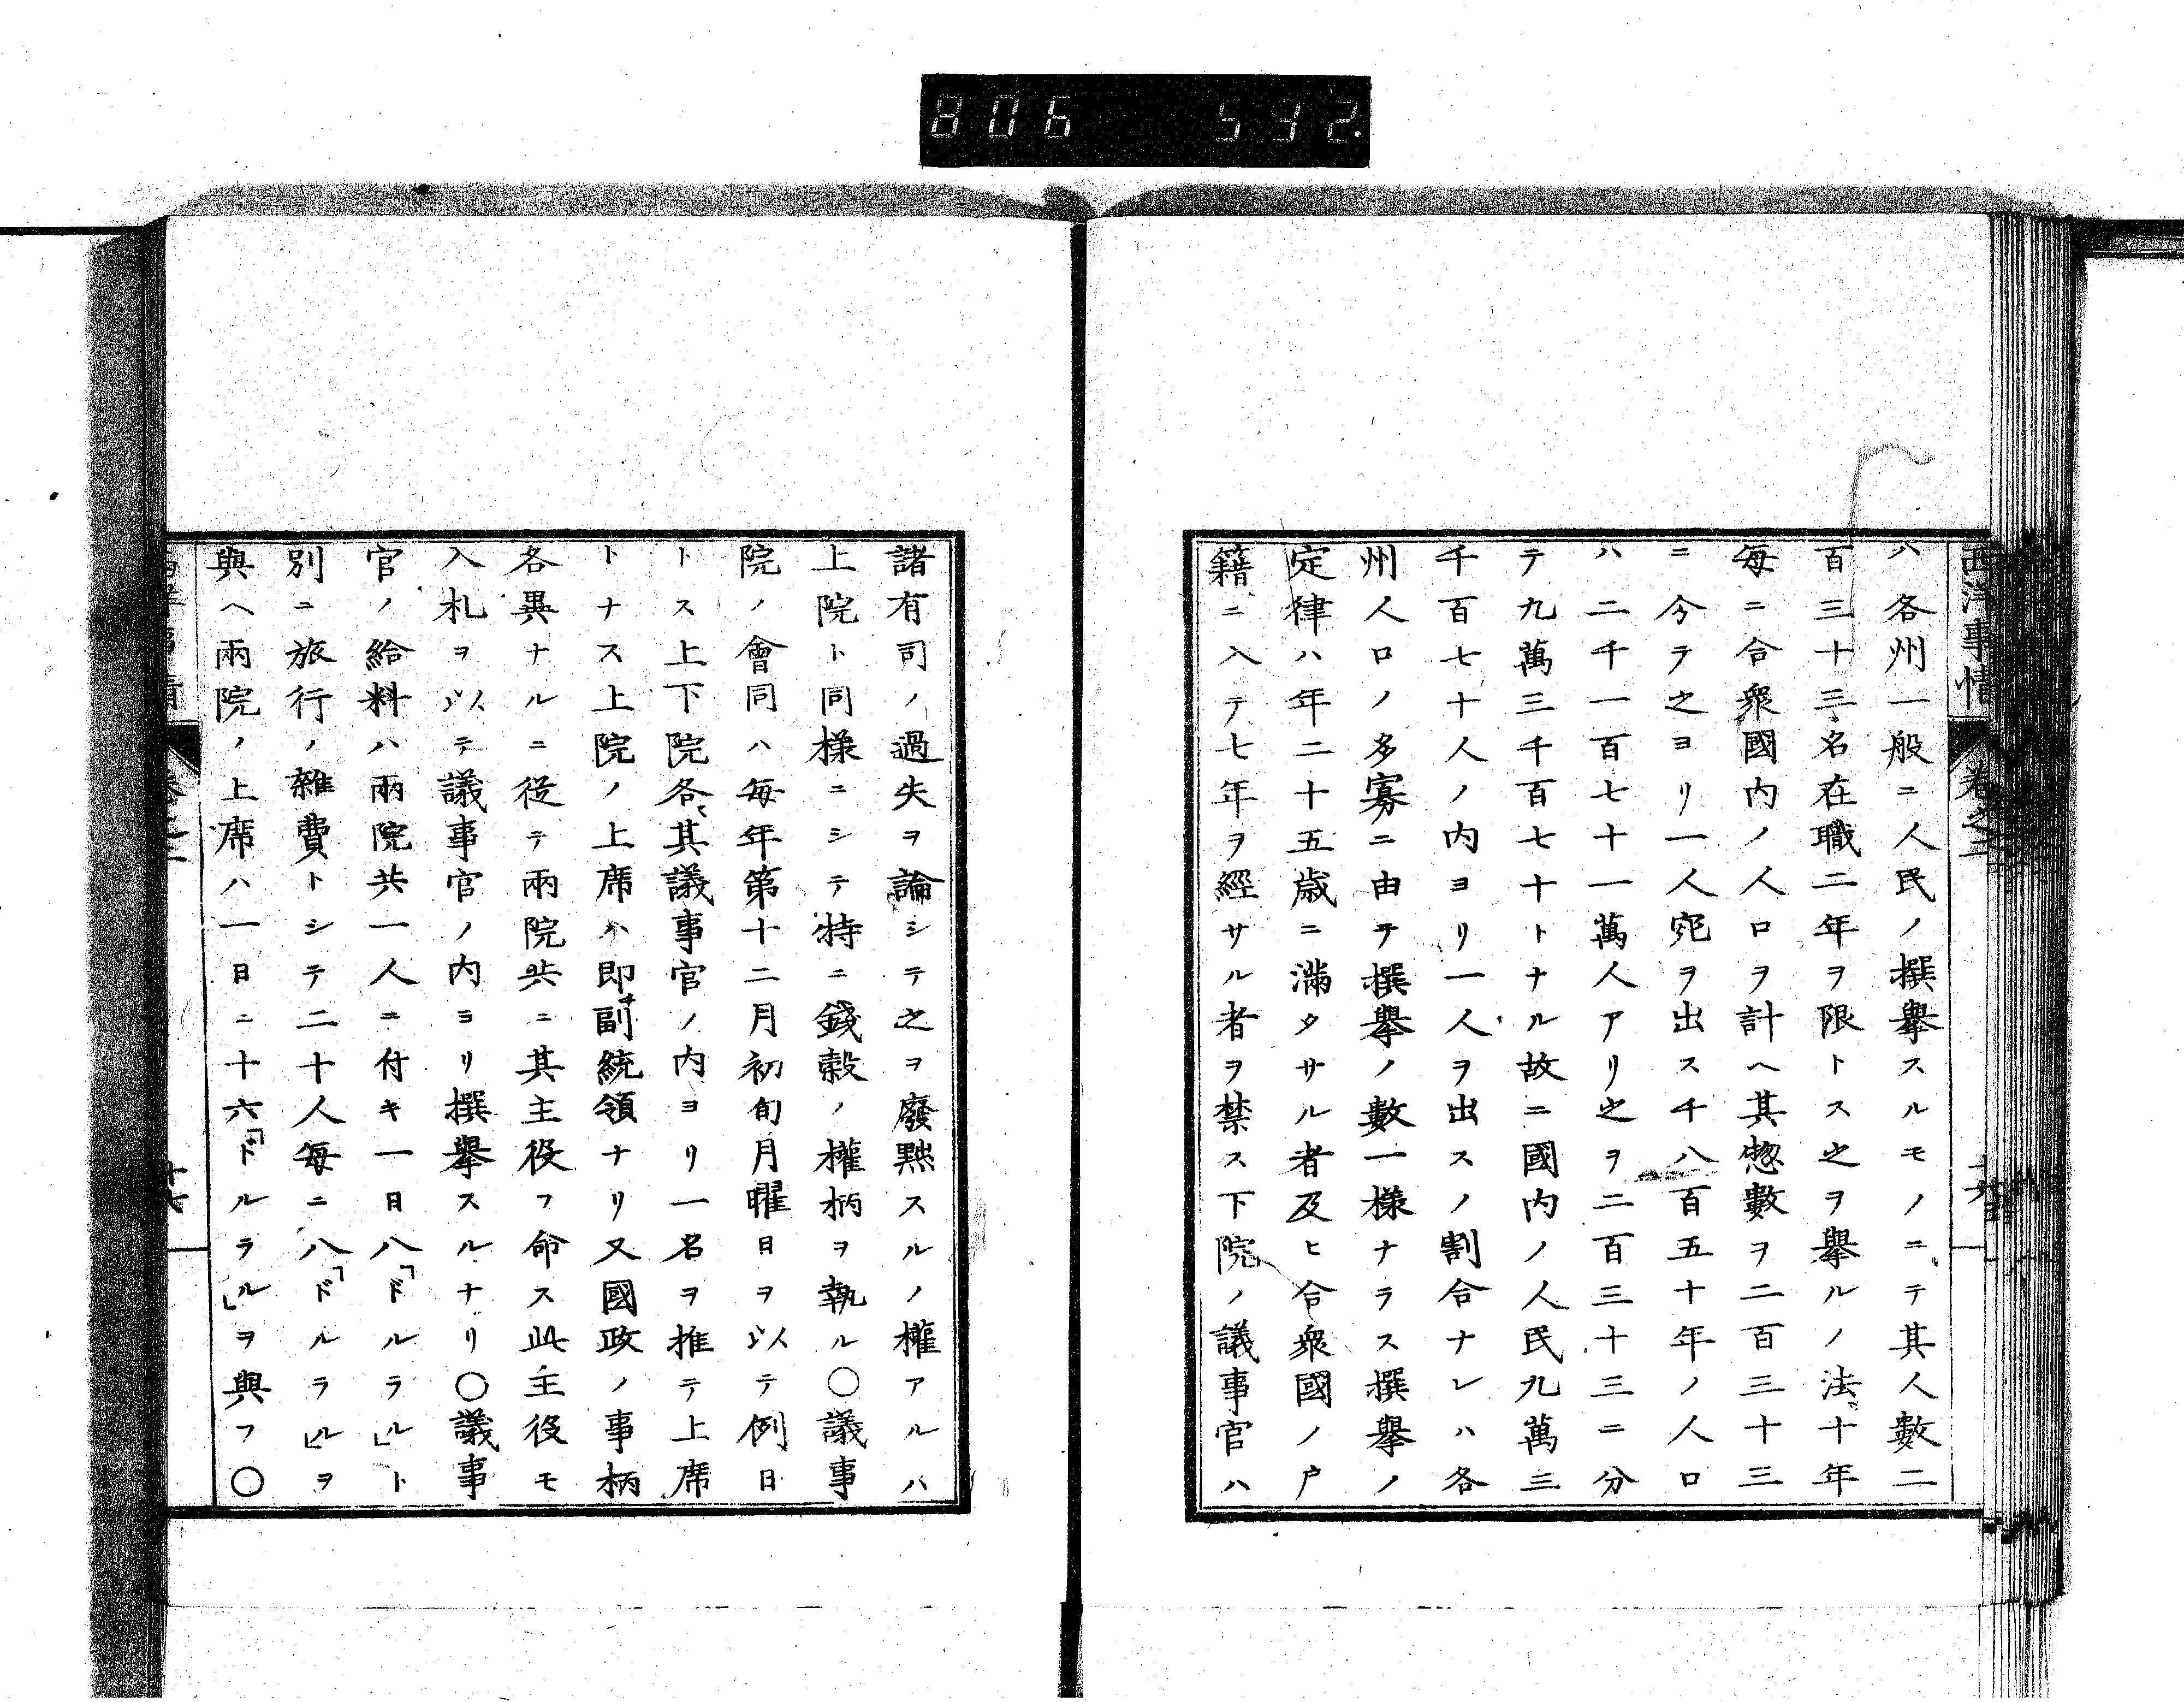 806 532.
西洋事情 卷之二
ハ各州一般ニ人民ノ撰擧スルモノニテ其人數二
百三十三名在職二年ヲ限トス之ヲ擧ルノ法十年
毎ニ合衆國内ノ人口ヲ計ヘ其惣數ヲ二百三十三
ニ今テ之ヨリ一人宛ヲ出ス千八百五十年ノ人口
ハ二千一百七十一萬人アリ之ヲ二百三十三ニ分
テ九萬三千百七十トナル故ニ國内ノ人民九萬三
千百七十人ノ内ヨリ一人ヲ出スノ割合ナレハ各
州人口ノ多寡ニ由テ撰擧ノ數一樣ナラス撰擧ノ
定律ハ年二十五歳ニ滿タサル者及ヒ合衆國ノ戸
籍ニ入テ七年ヲ經サル者ヲ禁ス下院ノ議事官ハ
諸有司ノ過失ヲ論シテ之ヲ廢黜スルノ權アルハ
上院ト同樣ニシテ特ニ錢穀ノ權柄ヲ執ル〇議事
院ノ會同ハ毎年第十二月初旬月曜日ヲ以テ例日
トス上下院各〻其議事官ノ内ヨリ一名ヲ推テ上席
トナス上院ノ上席ハ即チ副統領ナリ又國政ノ事柄
各異ナルニ從テ兩院共ニ其主役フ命ス此主役モ
入札ヲ以テ議事官ノ内ヨリ撰擧スルナリ〇議事
官ノ給料ハ兩院共一人ニ付キ一日八「ドルラル」ト
別ニ旅行ノ雜費トシテ二十人毎ニ八「ドルラル」ヲ
與ヘ兩院ノ上席ハ一日ニ十六「ドルラル」ヲ與フ〇
十七